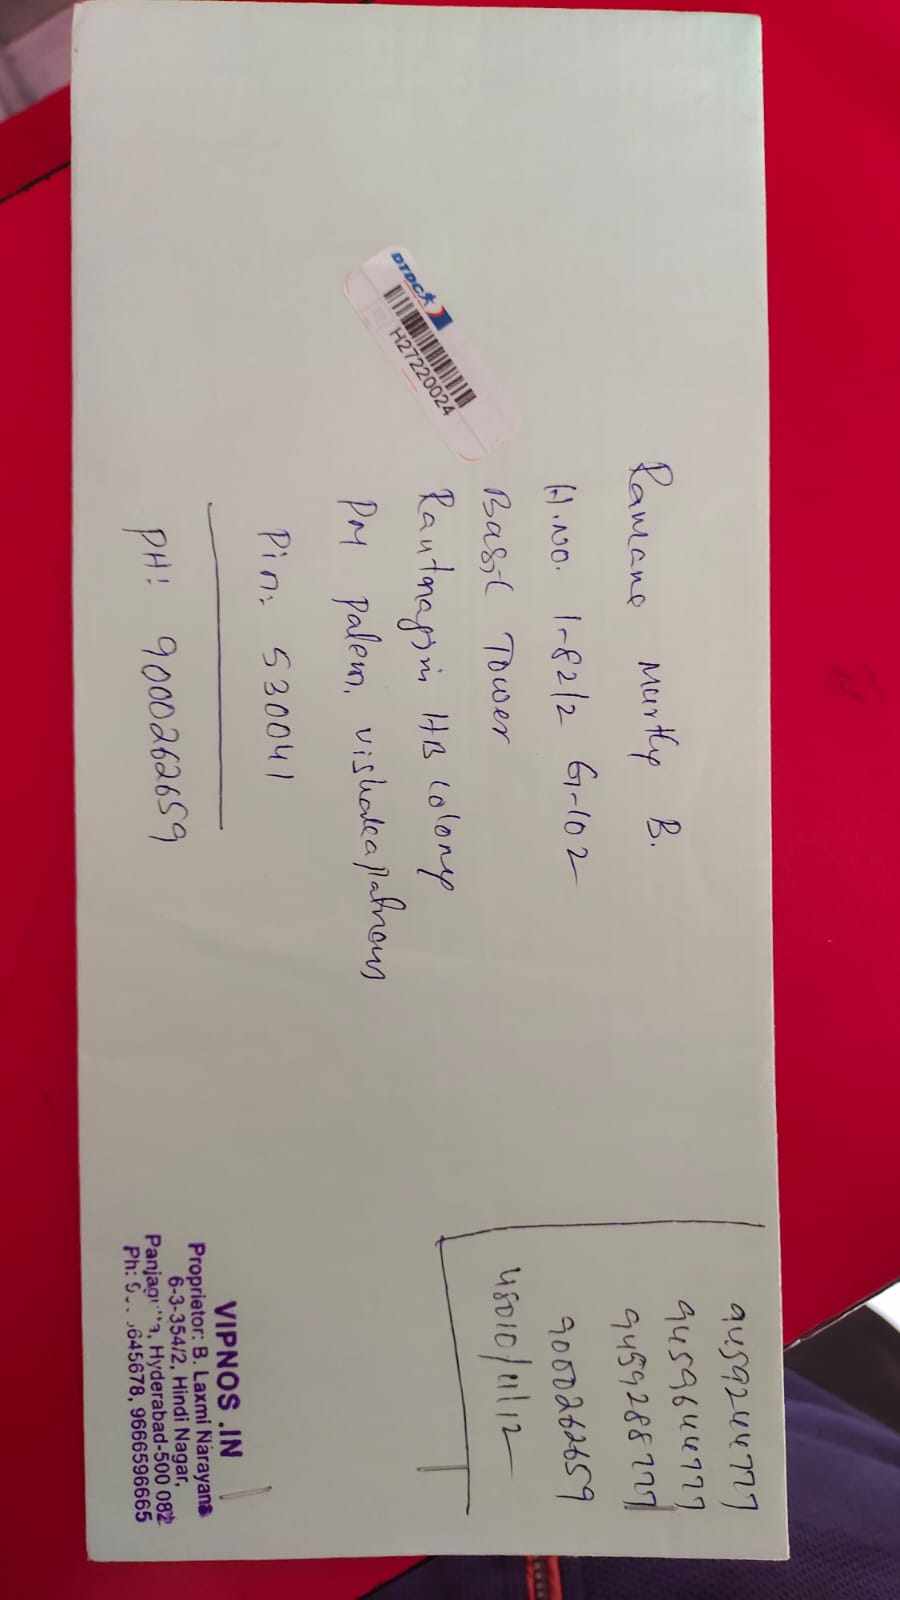 9459244777
9459644777
9459288777
9000262659
45010/11/12
DTDC
H27220024
Ramana Murthy B.
H.No. 1-82/2 G-102
Basic Tower
HB Colony
PM Palem, Vishakapatnam
Pin: 530041
PH: 9000262659
VIPNOS .IN
Proprietor: B. Laxmi Narayana
6-3-354/2, Hindi Nagar,
Hyderabad-500 082
Ph: 9666596665